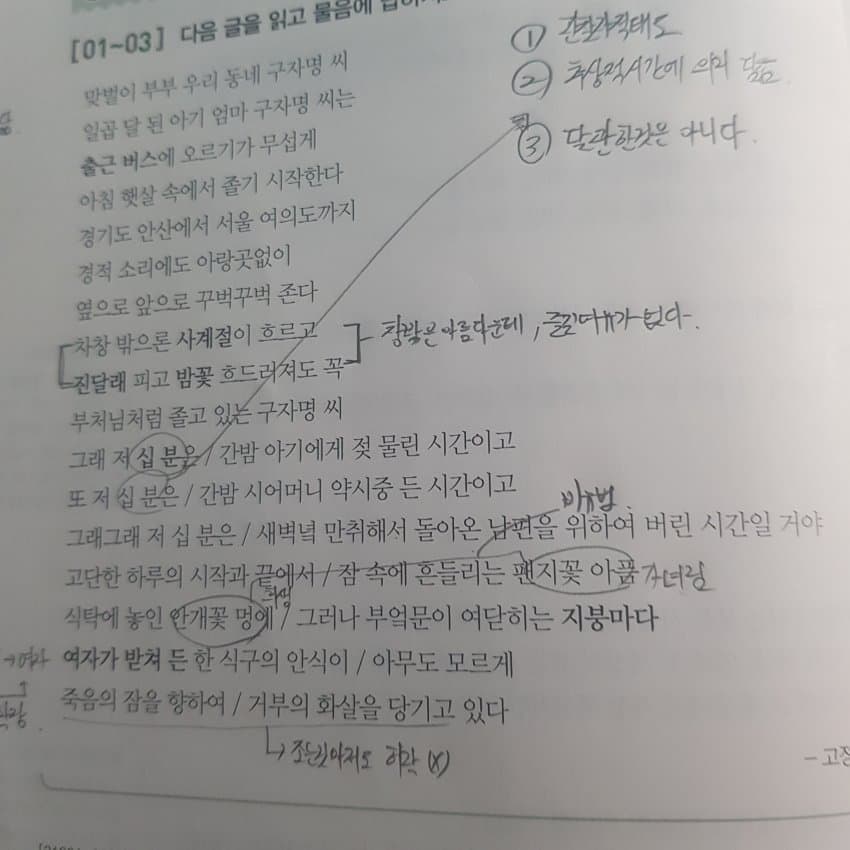 [01~03] 다음 글을 읽고 물음에
맞벌이 부부 우리 동네 구자명 씨
일곱 달 된 아기 엄마 구자명 씨는
출근 버스에 오르기가 무섭게
아침 햇살 속에서 졸기 시작한다
경기도 안산에서 서울 여의도까지
경적 소리에도 아랑곳없이
옆으로 앞으로 꾸벅꾸벅 존다
차창 밖으론 사계절이 흐르고
진달래 피고 밤꽃 흐드러져도 꼭
부처님처럼 졸고 있는 구자명 씨
그래 저 십 분은 / 간밤 아기에게 젖 물린 시간이고
또 저 십 분은 / 간밤 시어머니 약시중 든 시간이고
그래그래 저 십 분은 / 새벽녘 만취해서 돌아온 남편을 위하여 버린 시간일 거야
고단한 하루의 시작과 끝에서 / 잠 속에 흔들리는 팬지꽃 아픔
식탁에 놓인 안개꽃 멍에 / 그러나 부엌문이 여닫히는 지붕마다
여자가 받쳐 든 한 식구의 안식이 / 아무도 모르게
죽음의 잠을 향하여 / 거부의 화살을 당기고 있다
① 관찰자적태도
② 의
③ 달관한것은 아니다.
창밖은 아름다운데, 즐길 여유가 없다.
비유법
가녀림
희생
→여자
(X)